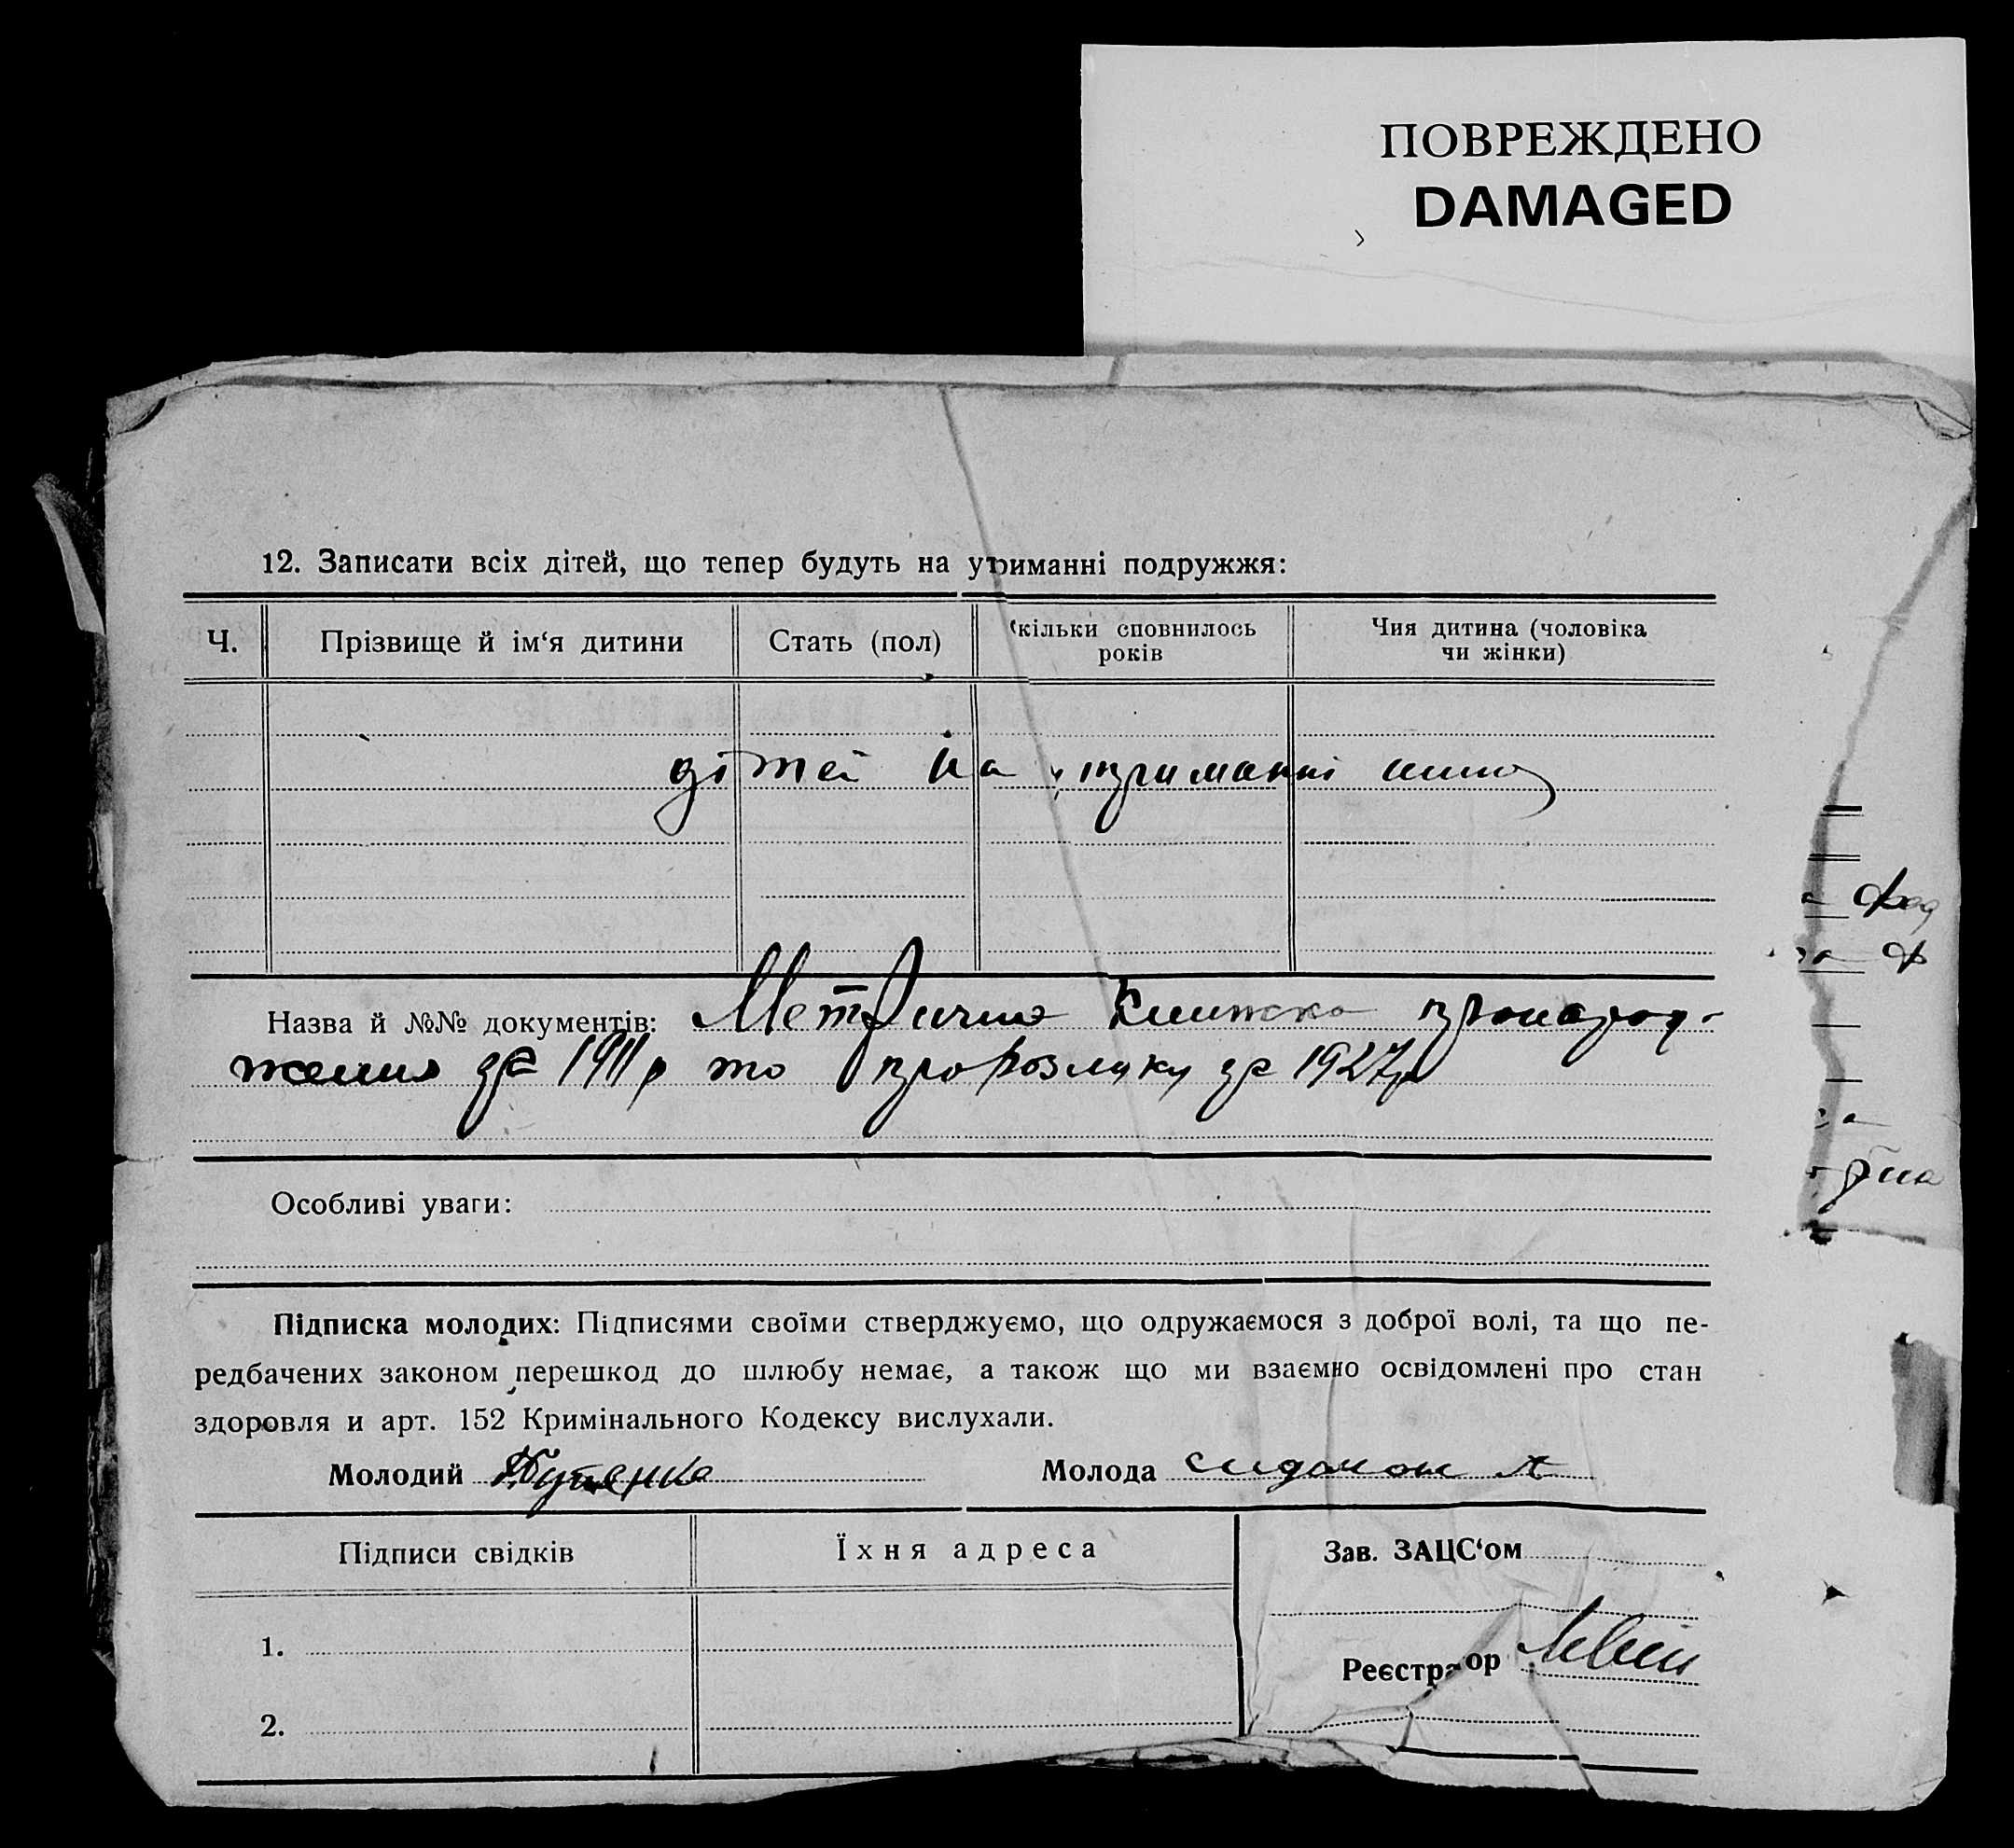 ПОВРЕЖДЕНО
DAMAGED
12. Записати всіх дітей, що тепер будуть на утриманні подружжя:
Ч. Прізвище й ім‘я дитини Стать (пол) кільки сповнилось років Чия дитина (чоловіка чи жінки)
дітей на утриманні
Назва й №№ документів: Метрична Книжка про народ-
ження за 1911р то про розлику за 1927р
Особливі уваги:
Підписка молодих: Підписями своїми стверджуємо, що одружаємося з доброї волі, та що пе-
редбачених законом перешкод до шлюбу немає, а також що ми взаємно освідомлені про стан
здоровля и арт. 152 Кримінального Кодексу вислухали.
Молодий Молода
Підписи свідків Їхня адреса Зав. ЗАЦС‘ом
1.
Реєстратор
2.